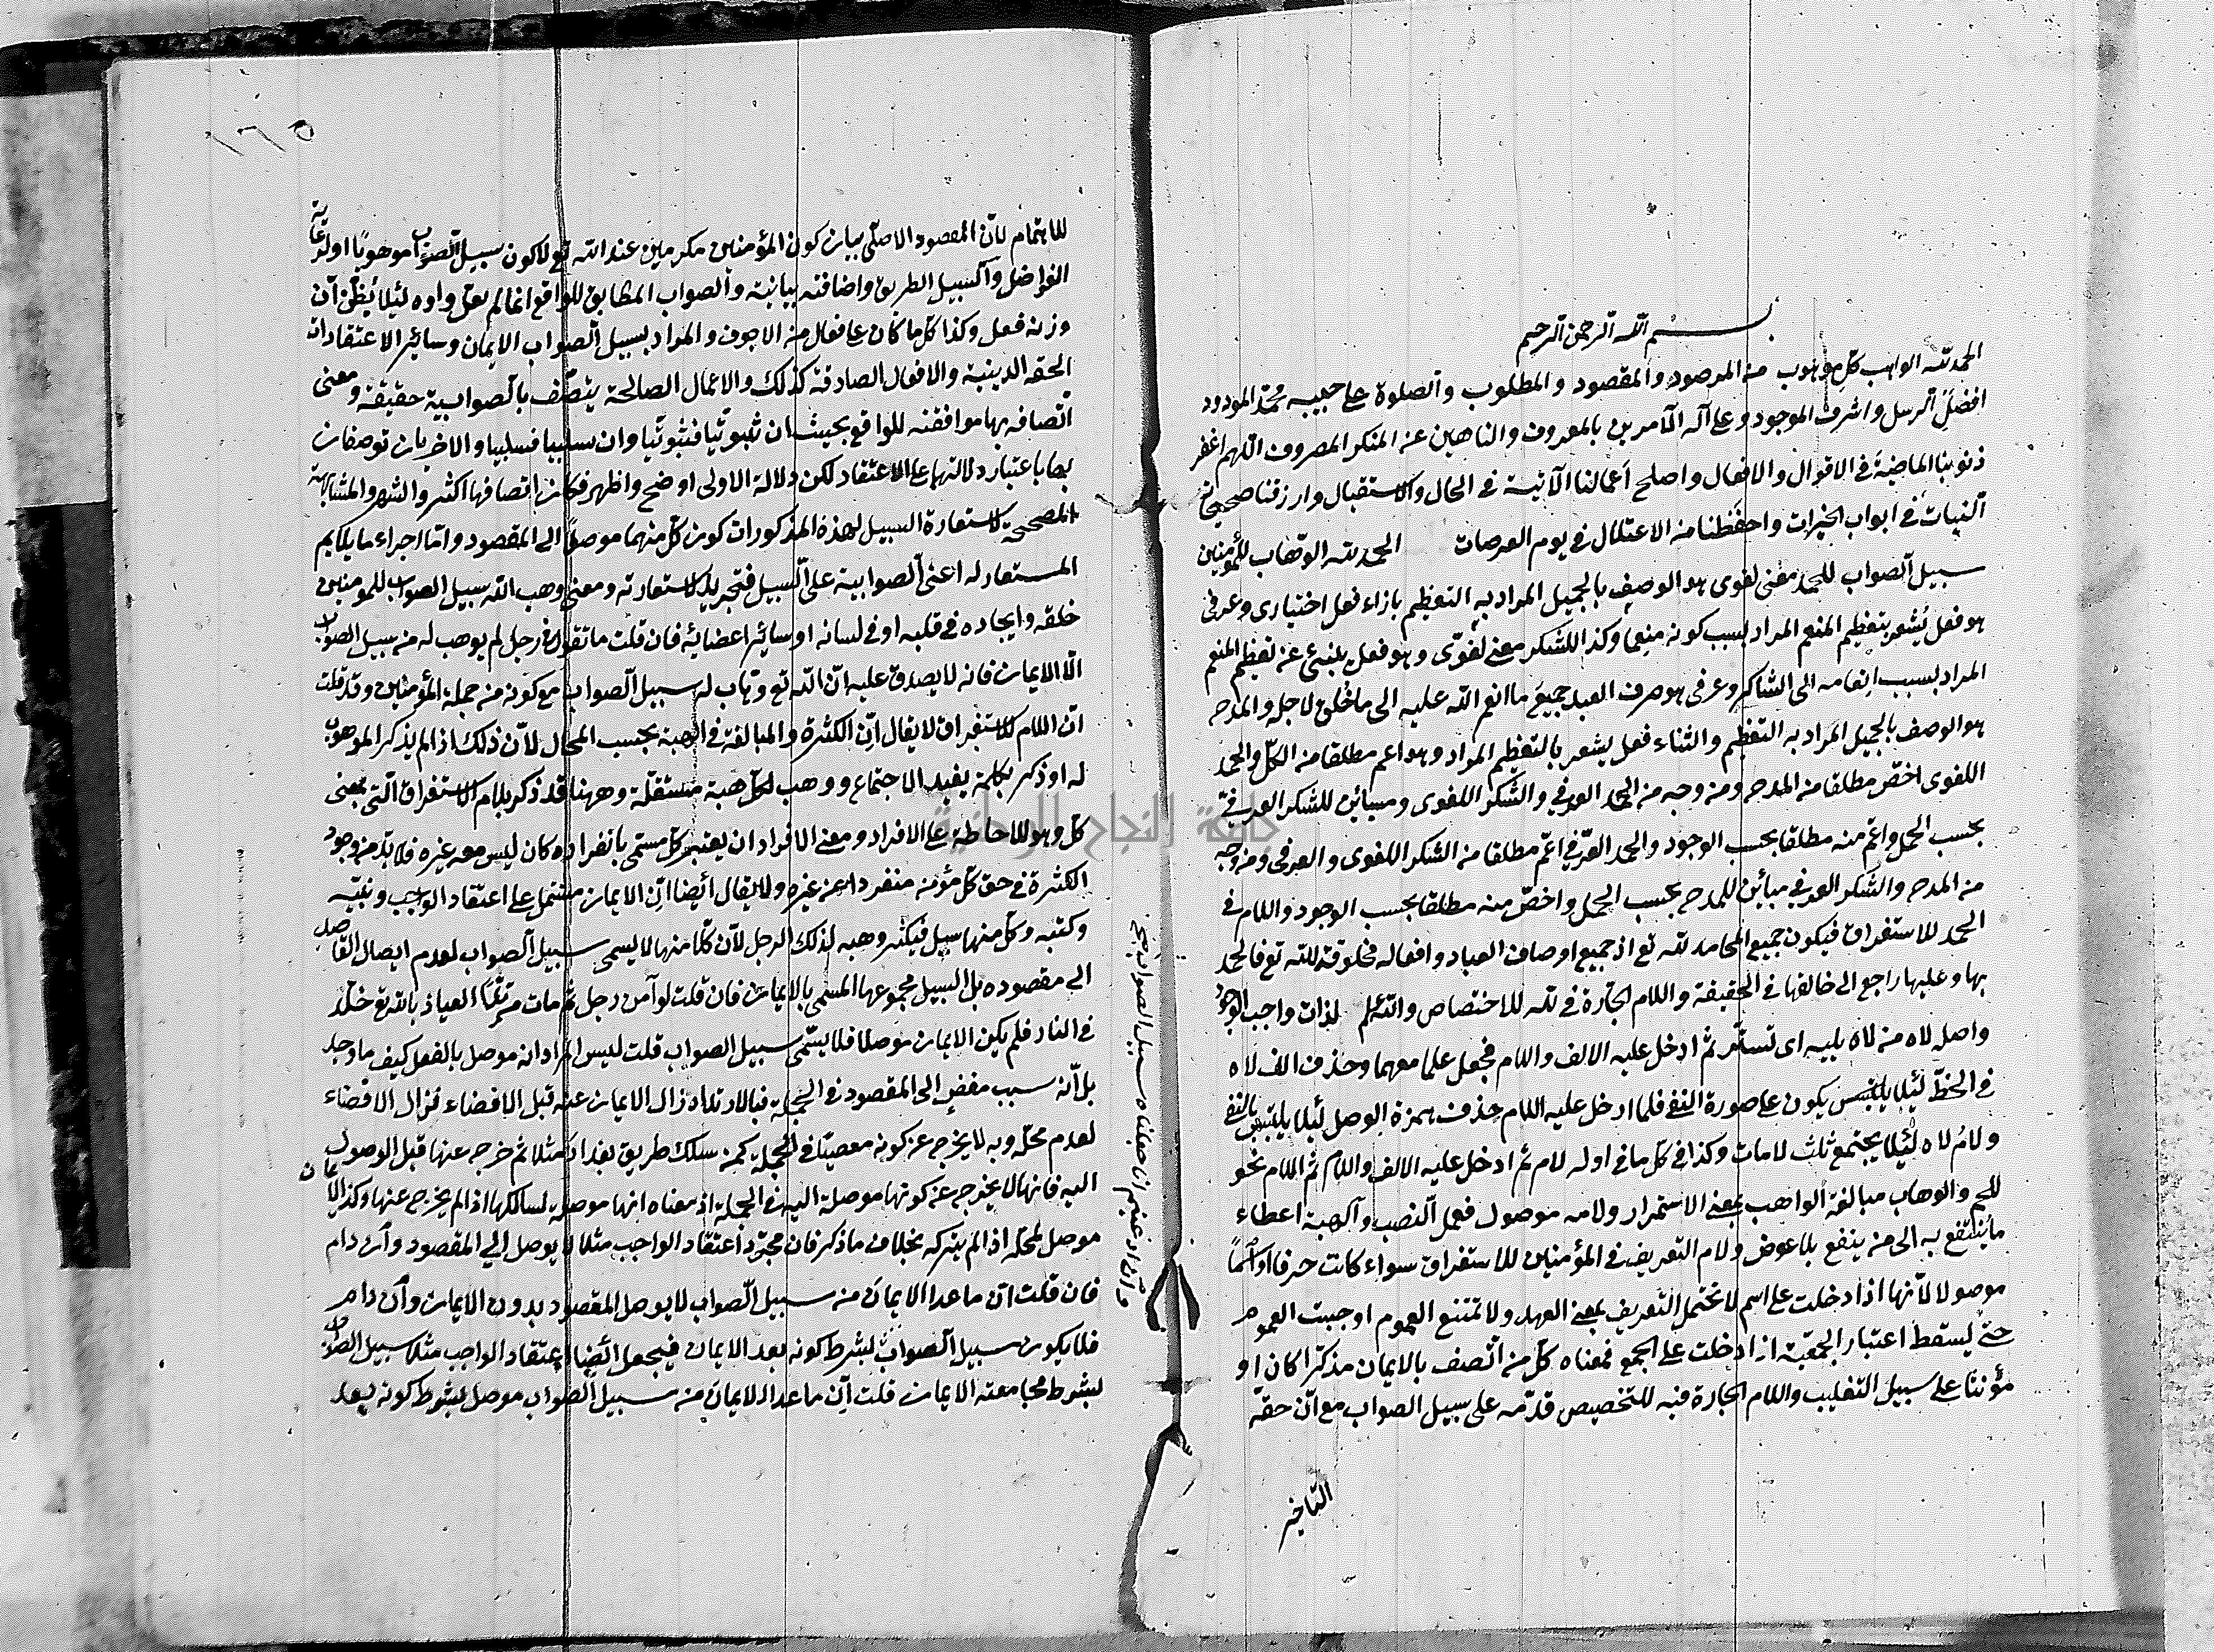 بسم الله الرحمن الرحيم
الحمد لله الواهب كل موهوب من المرصود والمقصود والمطلوب والصلوة على حبيبه محمد المودود
افضل الرسل واشرف الموجود وعلى آله الآمرين بالمعروف والناهين عن المنكر المصروف اللهم اغفر
ذنوبنا الماضية في الاقوال والافعال واصلح أعمالنا الآتية في الحال والاستقبال وارزقنا صحيحات
النيات في ابواب الخيرات واحفظنا من الاعتلال في يوم العرصات الحمد لله الوهاب للمؤمنين
سبيل الصواب للحمد معنى لغوى هو الوصف بالجميل المراد به التعظيم بازاء فعل اختيارى وعرفى
هو فعل يُشعر بتعظيم المنعم المراد بسبب كونه منعما وكذا للشكر معنى لغوّى وهو فعل ينبئ عن تعظيم المنعم
المراد بسبب انعامه الى الشاكر وعرفى هو صرف العبد جميع ما انعم الله عليه الى ما خُلق لاجله والمدح
هو الوصف بالجميل المراد به التعظيم والثناء فعل يشعر بالتعظيم المراد وهو اعم مطلقا من الكل والحمد
اللغوى اخصّ مطلقا من المدح ومن وجه من الحمد العرفي والشكر اللغوى ومبائن للشكر العرفيّ
بحسب الحمل واعمّ منه مطلقا بحسب الوجود والحمد العرفي اعمّ مطلقا من الشكر اللغوى والعرفى ومن وجه
من المدح والشكر العرفي مبائن للمدح بحسب الحمل واخصّ منه مطلقا بحسب الوجود واللام في
الحمد للاستغراق فيكون جميع المحامد لله تع اذ جميع اوصاف العباد وافعاله مخلوقة لله تع فالحمد
بها وعليها راجع الى خالقها في الحقيقة واللام الجارة في لله للاختصاص والله علم لذات واجب الوجود
واصل لاه من لاه يليه اى تستّر ثم ادخل عليه الالف واللام فجعل علما معهما وحذف الف لاه
في الخطّ لئلا يلتبس يكون على صورة النفي فلما ادخل عليه اللام حذف همزة الوصل لئلا يلتبس بالنفي
ولامُ لاه لئلا يجتمع ثلث لامات وكذا في كل ما في اوله لام ثم ادخل عليه الالف واللام ثم اللام نحو
للحم والوهاب مبالغة الواهب بمعنى الاستمرار ولامه موصول فعمل النصب والهبة اعطاء
ما يُنتفع به الى من ينتفع بلا عوض ولام التعريف في المؤمنين للاستغراق سواء كانت حرفا او اسمًا
موصولا لانّها اذا دخلت على اسم لا تحتمل التعريف بمعنى العهد ولا تمتنع العموم اوجبت العموم
حتى يسقط اعتبار الجمعية اذا دخلت على الجمع فمعناه كلّ من اتصف بالايمان مذكرا كان او
مؤنثا على سبيل التغليب واللام الجارة فيه للتخصيص قدّمه على سبيل الصواب مع انّ حقّه
التأخير
١٦٥
للاهتمام لانّ المقصود الاصلّى بيان كون المؤمنين مكرمين عند الله تع لا كون سبيل الصّواب موهوبًا او لرعاية
الفواصل والسبيل الطريق واضافته بيانية والصواب المطابق للواقع انما لم يعلّ واوه لئلا يُظنّ أن
وزنه فعل وكذا كل ما كان على فعال من الاجوف والمراد بسبيل الصواب الايمان وسائر الاعتقادات
الحقة الدينية والاقوال الصادقة كذلك والاعمال الصالحة يتّصف بالصوابية حقيقة ومعنى
اتّصافه بها موافقته للواقع بحيث ان ثبوتيّا فثبوتيّا وان سلبيا فسلبيا والاخريان توصفان
بها باعتبار دلالتها على الاعتقاد لكن دلالة الاولى اوضح واظهر فكان اتصافها اكثر واشهر والمشابهة
المصححة لاستعارة السبيل لهذه المذكورات كون كلّ منهما موصلاً الى المقصود وامّا اجراء ما يلايم
المستعار له اعنى الصوابية على السبيل فتجريد لاستعارته ومعنى وهب الله سبيل الصواب للمؤمنين
خلقه وايجاده في قلبه او في لسانه او سائر اعضائه فان قلت ما تقول في رجل لم يوهب له من سبيل الصواب
الّا الايمان فانه لا يصدق عليه انّ الله تع وهّاب له سبيل الصواب مع كونه من جملة المؤمنين وقد قلت
انّ اللام للاستغراق لا يقال انّ الكثرة والمبالغة في الهبة بحسب المحال لانّ ذلك اذا لم يذكر الموهوب
له او ذكر بكلمة يفيد الاجتماع ووهب لكلّ هبة مستقلّة وههنا قد ذكر بلام الاستغراق الّتي بمعنى
كلّ وهو للاحاطة على الافراد ومعنى الافراد ان يعتبر كلّ مسمّى بانفراده كان ليس معه غيره فلا بدّ من وجود
الكثرة في حق كلّ مؤمن منفردا عن غيره ولا يقال أيضا انّ الايمان مشتمل على اعتقاد الواجب ونبيّه
وكتبه وكلّ منها سبيل فيكثر وهبه لذلك الرجل لانّ كلّا منها لا يسمى سبيل الصواب لعدم ايصال القاصد
الى مقصوده بل السبيل مجموعها المسمّى بالايمان فان قلت لو آمن رجل ثم مات مرتدّا العياذ بالله تع خلّد
في النار فلم يكن الايمان موصلا فلا يسّمى سبيل الصواب قلت ليس المراد انه موصل بالفعل كيف ما وجد
بل انّه سبب مفضٍ الى المقصود في الجملة فبالارتداد زال الايمان عنه قبل الافضاء فزال الافضاء
لعدم محلّه وبه لا يخرج عن كونه مفضيا في الجملة كمن سلك طريق بغداد مثلا ثم خرج عنها قبل الوصول
اليه فانها لا يخرج عن كونها موصلة اليه في الجملة اذ معناه انها موصلة لسالكها اذا لم يخرج عنها وكذا الايمان
موصل لمحلّه اذا لم يتركه بخلاف ما ذكر فان مجرّد اعتقاد الواجب مثلا لا يوصل الى المقصود وأن دام
فان قلت انّ ما عدا الايمان من سبيل الصواب لا يوصل المقصود بدون الايمان وأن دام
فلا يكون سبيل الصواب بشرط كونه بعد الايمان فيجعل أيضا اعتقاد الواجب مثلا سبيل الصواب
بشرط مجامعته الايمان قلت انّ ما عدا الايمان من سبيل الصواب موصل بشرط كونه بعد
جامعة النجاح الوطنية